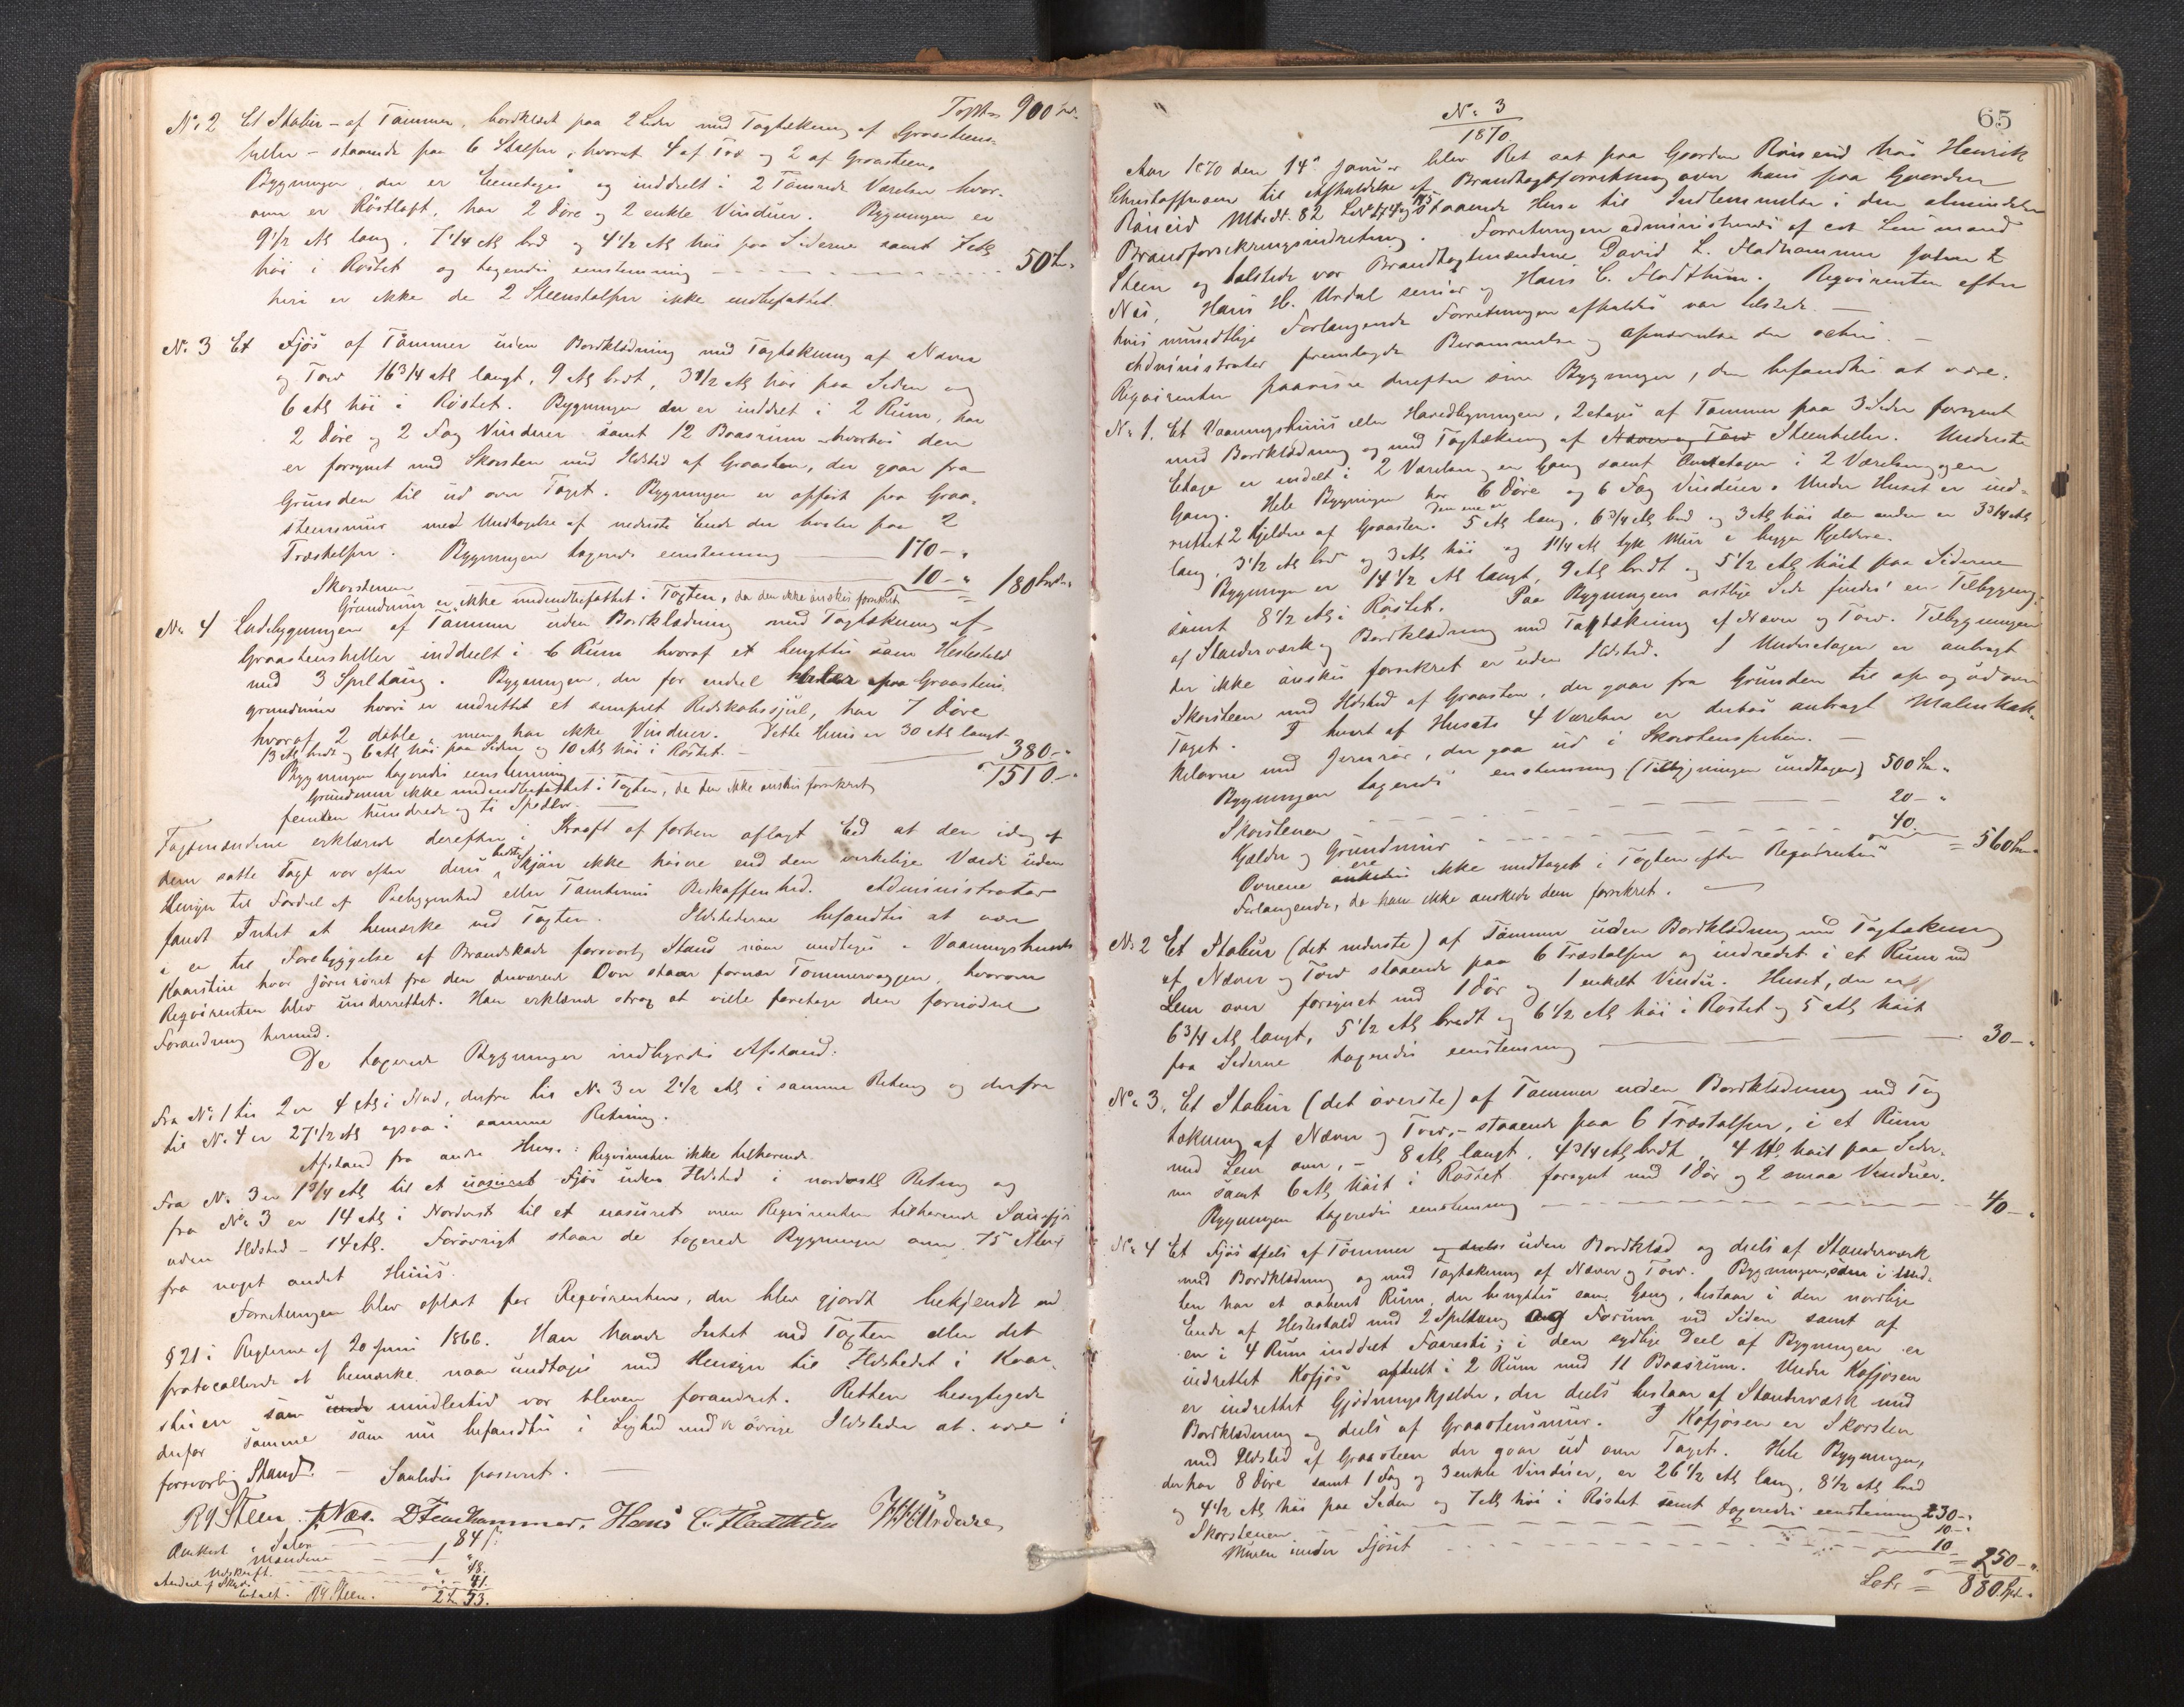 Taxt 900 Spd.
No 2 Et Stabur - af Tømmer, bordklædt paa 2 Sider med Tagtækning af Graasteens-
heller - staaende paa 6 Stolper, hvoraf 4 af Træ og 2 af Graasteen,
Bygningen, der er Eenetages og inddeelt i 2 Tømrede Værelser hvor-
over er Röstloft, har 2 Döre og 2 enkle Vinduer. Bygningen er
9 1/2 Al. lang, 7 1/4 Al. bred og 4 1/2 Al. höi paa Siderne samt 7 Al.
höi i Röstet og taxeredes eenstemmig - - - - 50 "
heri er ikke de 2 Steenstolper ikke indbefattet.
No 3 Et Fjös af Tömmer uden Bordklædning med Tagtækning af Næver
og Torv 16 3/4 Al. langt, 9 Al. bredt, 3 1/2 Al. höi paa Siden og
6 Al. höi i Röstet. Bygningen der er inddelt i 2 Rum, har
2 Döre og 2 Fag Vinduer samt 12 Baasrum - hvorhos den
er forsynet med Skorsten med Ildsted af Graasten, der gaar fra
Grunden til ud over Taget. Bygningen er opfört paa Graa-
steensmur med Undtagelse af nederste Ende der hviler paa 2
Træstolper. Bygningen taxeredes eenstemmig - 170 - "
Skorstenen - 10 - " = 180 Spd. "
Grundmur er ikke medindbefattet i Taxten, da den ikke önskes forsikret
No 4 Ladebygningen af Tömmer uden Bordklædning med Tagtækning af
Graasteensheller inddeelt i 6 Rum hvoraf et benyttes som Hestestald
med 3 Spiltaug. Bygningen, der for endeel hviler paa Graasteens
grundmur hvori er indrettet et simpelt Redskabsskjul, har 7 Döre
hvoraf 2 doble, men har ikke Vinduer. Dette Huus er 30 Al. langt
13 Al. bredt og 6 Al. höi paa Siden og 10 Al. höi i Röstet. -
Bygningen taxeredes eenstemmig - 380 - "
Grundmur ikke medindbefattet i Taxten, da den ikke önskes forsikret 1510 - "
femten hundrede og ti Spedlr. -
Taxtmændene erklærede derefter i Kraft af forhen aflagt Eed at den idag af
dem satte Taxt var efter deres bedste Skjön ikke höiere end den virkelige Værdi uden
Hensyn til Fordeel af Beliggenhed eller Tomtens Beskaffenhed. Administrator
fandt Intet at bemærke ved Taxten. Ildstederne befandtes at være
i en til Forebyggelse af Brandskade forsvarlig Stand naar undtages i Vaaningshusets
Kaarstue hvor Jernröret fra den deværende Ovn staar fornær Tömmervæggen, hvorom
Reqvirenten blev underrettet. Han erklærede strax at ville foretage den fornödne
Forandring hermed.
De taxerede Bygningers indbyrdes Afstand:
Fra No 1 til 2 er 4 Al. i Nord, derfra til No 3 er 2 1/2 Al. i samme Retning og derfra
til No 4 er 27 1/2 Al. ogsaa i samme Retning.
Afstand fra andre Huse: Reqvirenten ikke tilhørende.
Fra No 3 er 1 3/4 Al. til et uasureret Fjös uden Ildsted i nordostl. Retning og
fra No 3 er 14 Al. i Nordvest til et uasureret men Reqvirenten tilhørende Sauefjös
uden Ildsted - 14 Al. Forövrigt staar de taxerede Bygninger over 75 Alen
fra noget andet Huus.
Forretningen blev oplæst for Reqvirenten, der blev gjordt bekjendt med
§ 21 i Reglerne af 20 Juni 1866. Han havde Intet ved Taxten eller det
protocollerede at bemærke, naar undtages med Hensyn til Ildstedet i Kaar-
stuen som imidlertid var bleven forandret. Retten besigtigede
derfor samme som nu befandtes i Lighed med de övrige Ildsteder at være i
forsvarlig Stand. - Saaledes passeret. -
R J Steen. J Næs. D Fladhammer. Hans C. Fladthun HHUrdal
84 ſ:
Mændene
Udskrift - 48.
R J Steen. 2 53.
65
No 3
1870
Aar 1870 den 14de Januar blev Ret sat paa Gaarden Röneid hos Henrik
Christoffersen til Afholdelse af Brandtaxtforretning over hans paa Gaarden
Röneid Matr. No. 82 staaende Huse til Indlemmelse i den almindelige
Brandforsikringsindretning. Forretningen administreredes af cst Lensmand
Steen og tilstede var Brandtaxtmændene David L. Fladhammer, Johan
Næs, Hans H. Urdal senior og Hans C. Fladthun. Reqvirenten efter
hvis mundtlige Forlangende Forretningen afholdes var tilstede. -
Administrator fremlagde Berammelse og Opnævnelse der acteres. -
Reqvirenten paaviste derefter sine Bygninger, der befandtes at være.
No 1. Et Vaaningshuus eller Hovedbygningen, 2 etages af Tømmer paa 3 Sider forsynet
med Bordklædning og med Tagtækning af Næver og Torv Steenheller. Underste
Etage er inddelt i 2 Værelser og en Gang samt Overetagen i 2 Værelser og en
Gang. Hele Bygningen har 6 Döre og 6 Fag Vinduer. Under Huset er ind-
rettet 2 Kjeldre af Graasten. Den ene er 5 Al. lang, 6 3/4 Al. bred og 3 Al. höi den anden er 3 3/4 Al.
lang, 3 1/2 Al. bred og 3 Al. höi og 1 1/4 Al. tyk Muur i begge Kjeldere.
Bygningen er 14 1/2 Al. langt, 9 Al. bredt og 5 1/2 Al. höit paa Siderne
samt 8 1/2 Al. i Röstet. Paa Bygningens østlige Side findes en Tilbygning
af Standerværk og Bordklædning med Tagtækning af Næver og Torv. Tilbygningen
der ikke önskes forsikret er uden Ildsted. I Underetagen er anbragt
Skorsteen med Ildsted af Graasten, der gaar fra Grunden til op og ud over
Taget. I hvert af Husets 4 Værelser er derhos anbragt Malenkak-
kelovne med Jernrör, der gaa ud i Skorstenspiben. -
Bygningen taxeredes enstemmig (Tilbygningen undtagen) 500 Spd "
Skorstenen - - - - 20 - "
Kjelder og Grundmur - - - 40. - = 560 Spd. "
Ovnene ere ikke medtaget i Taxten efter Reqvirentens
Forlangende, da han ikke önskede dem forsikret. -
No 2 Et Stabur (det nederste) af Tömmer uden Bordklædning med Tagtækning
af Næver og Torv staaende paa 6 Træstolper og indredet i et Rum med
Lem over forsynet med 1 Dör og 1 enkelt Vindu. Huset, der er
6 3/4 Al. langt, 5 1/2 Al. bredt og 6 1/2 Al. höi i Röstet og 5 Al. höit
paa Siderne taxeredes eenstemmig - 30 - "
No 3. Et Stabur (det överste) af Tømmer uden Bordklædning med Tag
tækning af Næver og Torv, - staaende paa 6 Træstolper, i et Rum
med Lem over, - 8 Al. langt, 4 3/4 Al. bredt, 4 Al. höit paa Sider-
ne samt 6 Al. höit i Röstet forsynet med 1 Dör og 2 smaa Vinduer.
Bygningen taxeredes eenstemmig - - - 40 - "
No 4 Et Fjös dels af Tömmer og deels uden Bordklæd. og deels af Standerværk
med Bordklædning og med Tagtækning af Næver og Torv. Bygningen, som i Mid-
ten har et aabent Rum, der benyttes som Gang, bestaar i den nordlige
Ende af Hestestald med 2 Spiltaug og Forrum ved Siden samt af
en i 4 Rum inddeelt Faaresti; i den sydlige Deel af Bygningen er
indrettet Kofjös afdeelt i 2 Rum med 11 Baasrum. Under Kofjösen
er indrettet Gjödningskjelder, der deels bestaar af Standerværk med
Bordklædning og deels af Graasteensmuur. I Kofjösen er Skorsten
med Ildsted af Graasteen der gaar ud over Taget. Hele Bygningen,
der har 8 Döre samt 1 Fag og 3 enkle Vinduer, er 26 1/2 Al. lang, 8 1/2 Al. bred
og 4 1/2 Al. höi paa Siden og 7 Al. höi i Röstet samt taxeredes eenstemmig 230 - "
Skorstenen - - - 10 - "
Muren under Fjöset - - - 10 - = 250 - "
Lats = 880 Spd. "